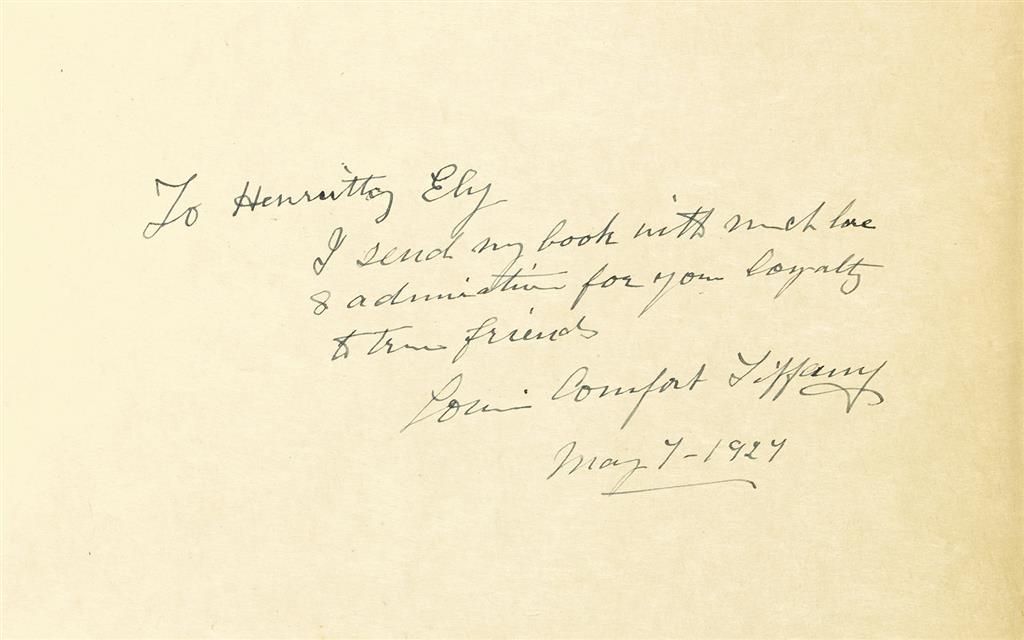 To Henrietta Ely
I send my book with much love
& admiration for your loyalty
to true friends
Louis Comfort Tiffany
May 7-1927